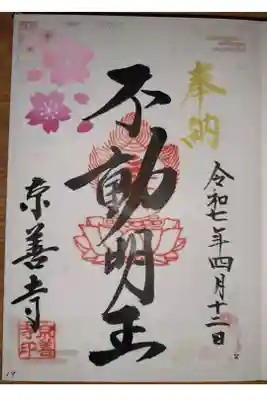 奉納
令和七年四月十二日
不動明王
宗善寺